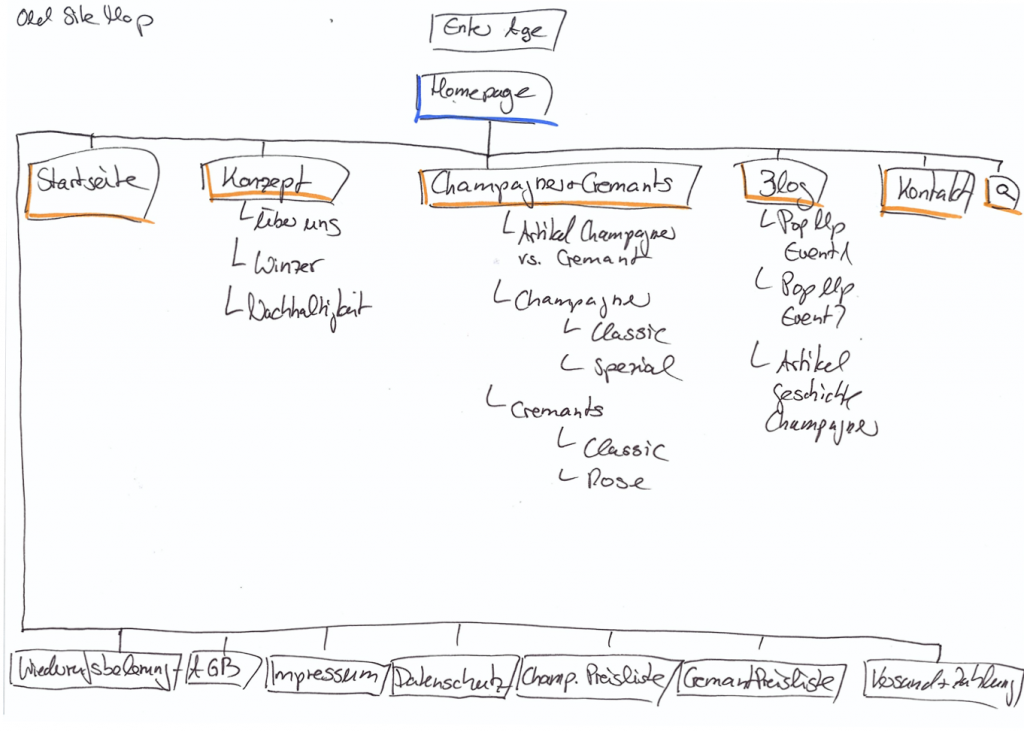 Old Site Map
Enter Age
Homepage
Startseite
Konzept
Champagner + Cremants
Blog
Kontakt
Q
Über uns
Winzer
Nachhaltigkeit
Artikel Champagner
vs. Cremant
Champagner
Classic
Spezial
Cremants
Classic
Rose
Pop Up
Event 1
Pop Up
Event
Artikel
Geschichte
Champagner
AGB
Impressum
Datenschutz
Champ. Preisliste
Cremant Preisliste
Versand + Zahlung